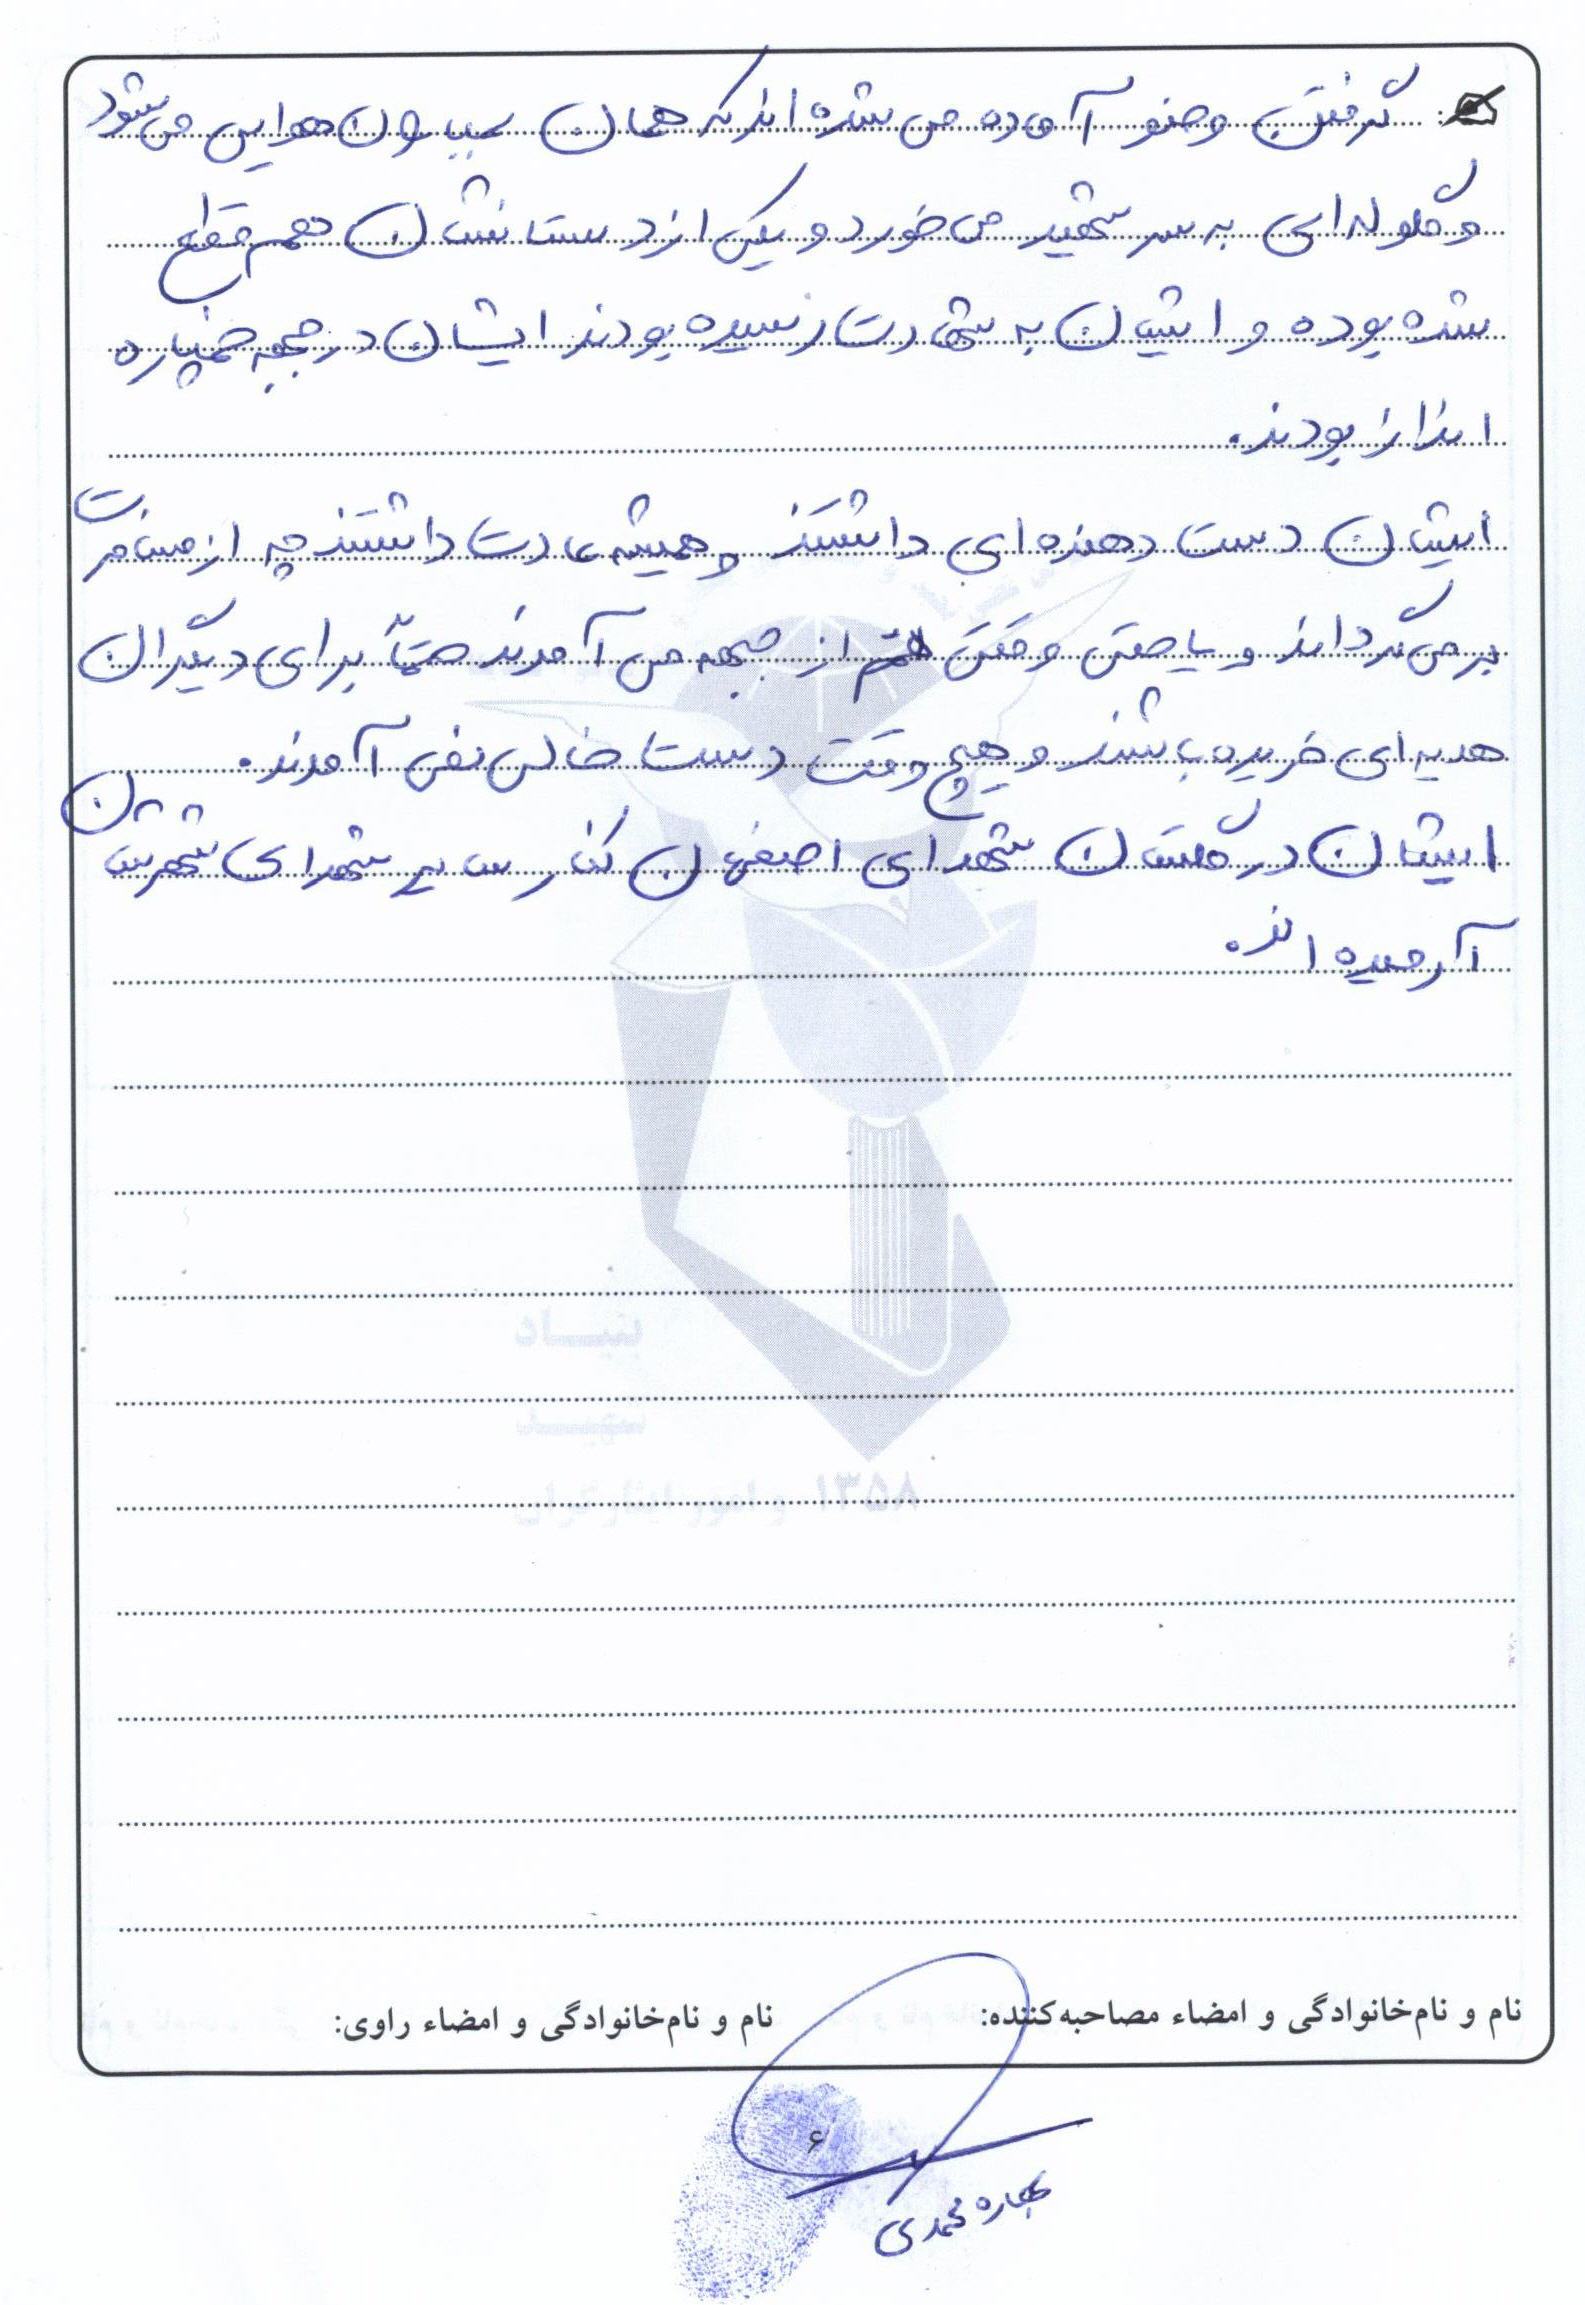 گرفتن وضو آماده می شده اند که همان بمباران هوایی می شود
و گلوله ای به سر شهید می خورد و یکی از دستانشان هم قطع
شده بوده و ایشان به شهادت رسیده بودند ایشان در جبهه خمپاره
انداز بودند.
ایشان دست دهنده ای داشتند و همیشه عادت داشتند چه از مسافرت
برمی گرداند و یا حتی وقتی از جبهه می آمدند حتماً برای دیگران
هدیه ای خریده باشند و هیچ وقت دست خالی نمی آمدند.
ایشان در گلستان شهدای اصفهان کنار سایر شهدای شهرشان
آرمیده اند.
بنیاد
شهید
و امور ایثارگران ۱۳۵۸
نام و نام‌خانوادگی و امضاء مصاحبه‌کننده: نام و نام‌خانوادگی و امضاء راوی:
۶
بهاره محمدی